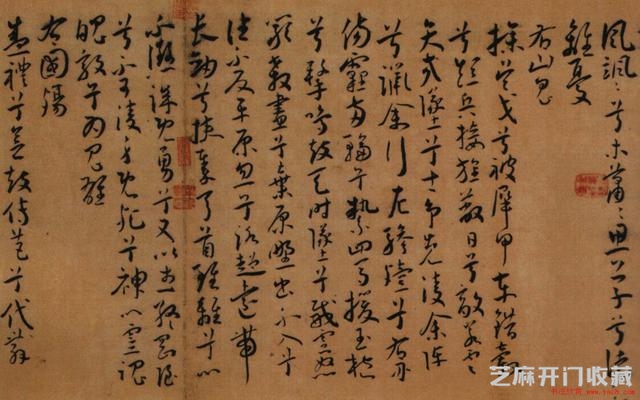 風颯〻兮木蕭〻思公子兮徒
離憂
右山鬼
操吴戈兮被犀甲車錯轂
兮短兵接旌蔽日兮敵若雲
矢交墜兮士争先凌余陣
兮躐余行左驂殪兮右刃
傷霾兩輪兮縶四馬援玉枹
兮擊鳴鼓天時墜兮威靈怒
嚴殺盡兮棄原野出不入兮
往不反平原忽兮路超遠帶
長劍兮挾秦弓首雖離兮心
不懲誠既勇兮又以武終剛強
兮不可凌身既死兮神以靈魂
魄毅兮為鬼雄
右國殤
盛禮兮會鼓傳芭兮代舞
芝麻开门收藏